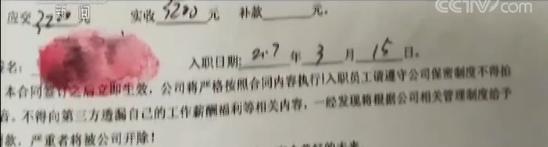 新闻 CCTV.com
应交 3200 元 实收 3200 元 补款 元。
名: 入职日期: 2017 年 3 月 15 日。
本合同签订之后立即生效,公司将严格按照合同内容执行!入职员工请遵守公司保密制度不得拍
音。不得向第三方透漏自己的工作薪酬福利等相关内容,一经发现将根据公司相关管理制度给予
款,严重者将被公司开除!